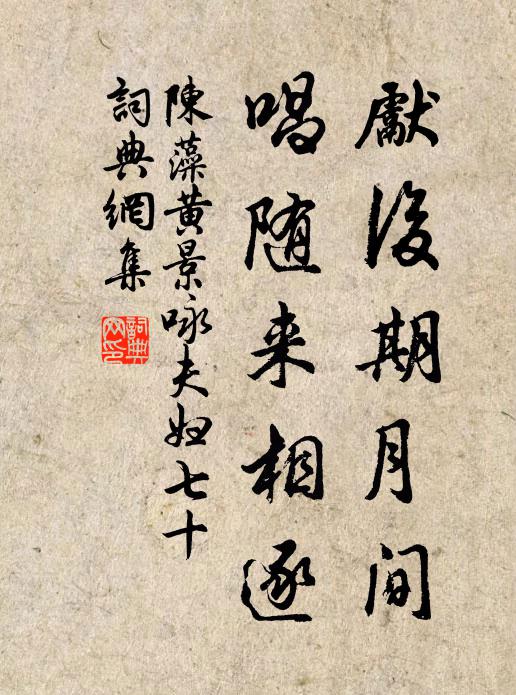 獻後期月间
唱随来相逐
陳藻黄景咏夫妇七十
詞典網集
詞典
网印